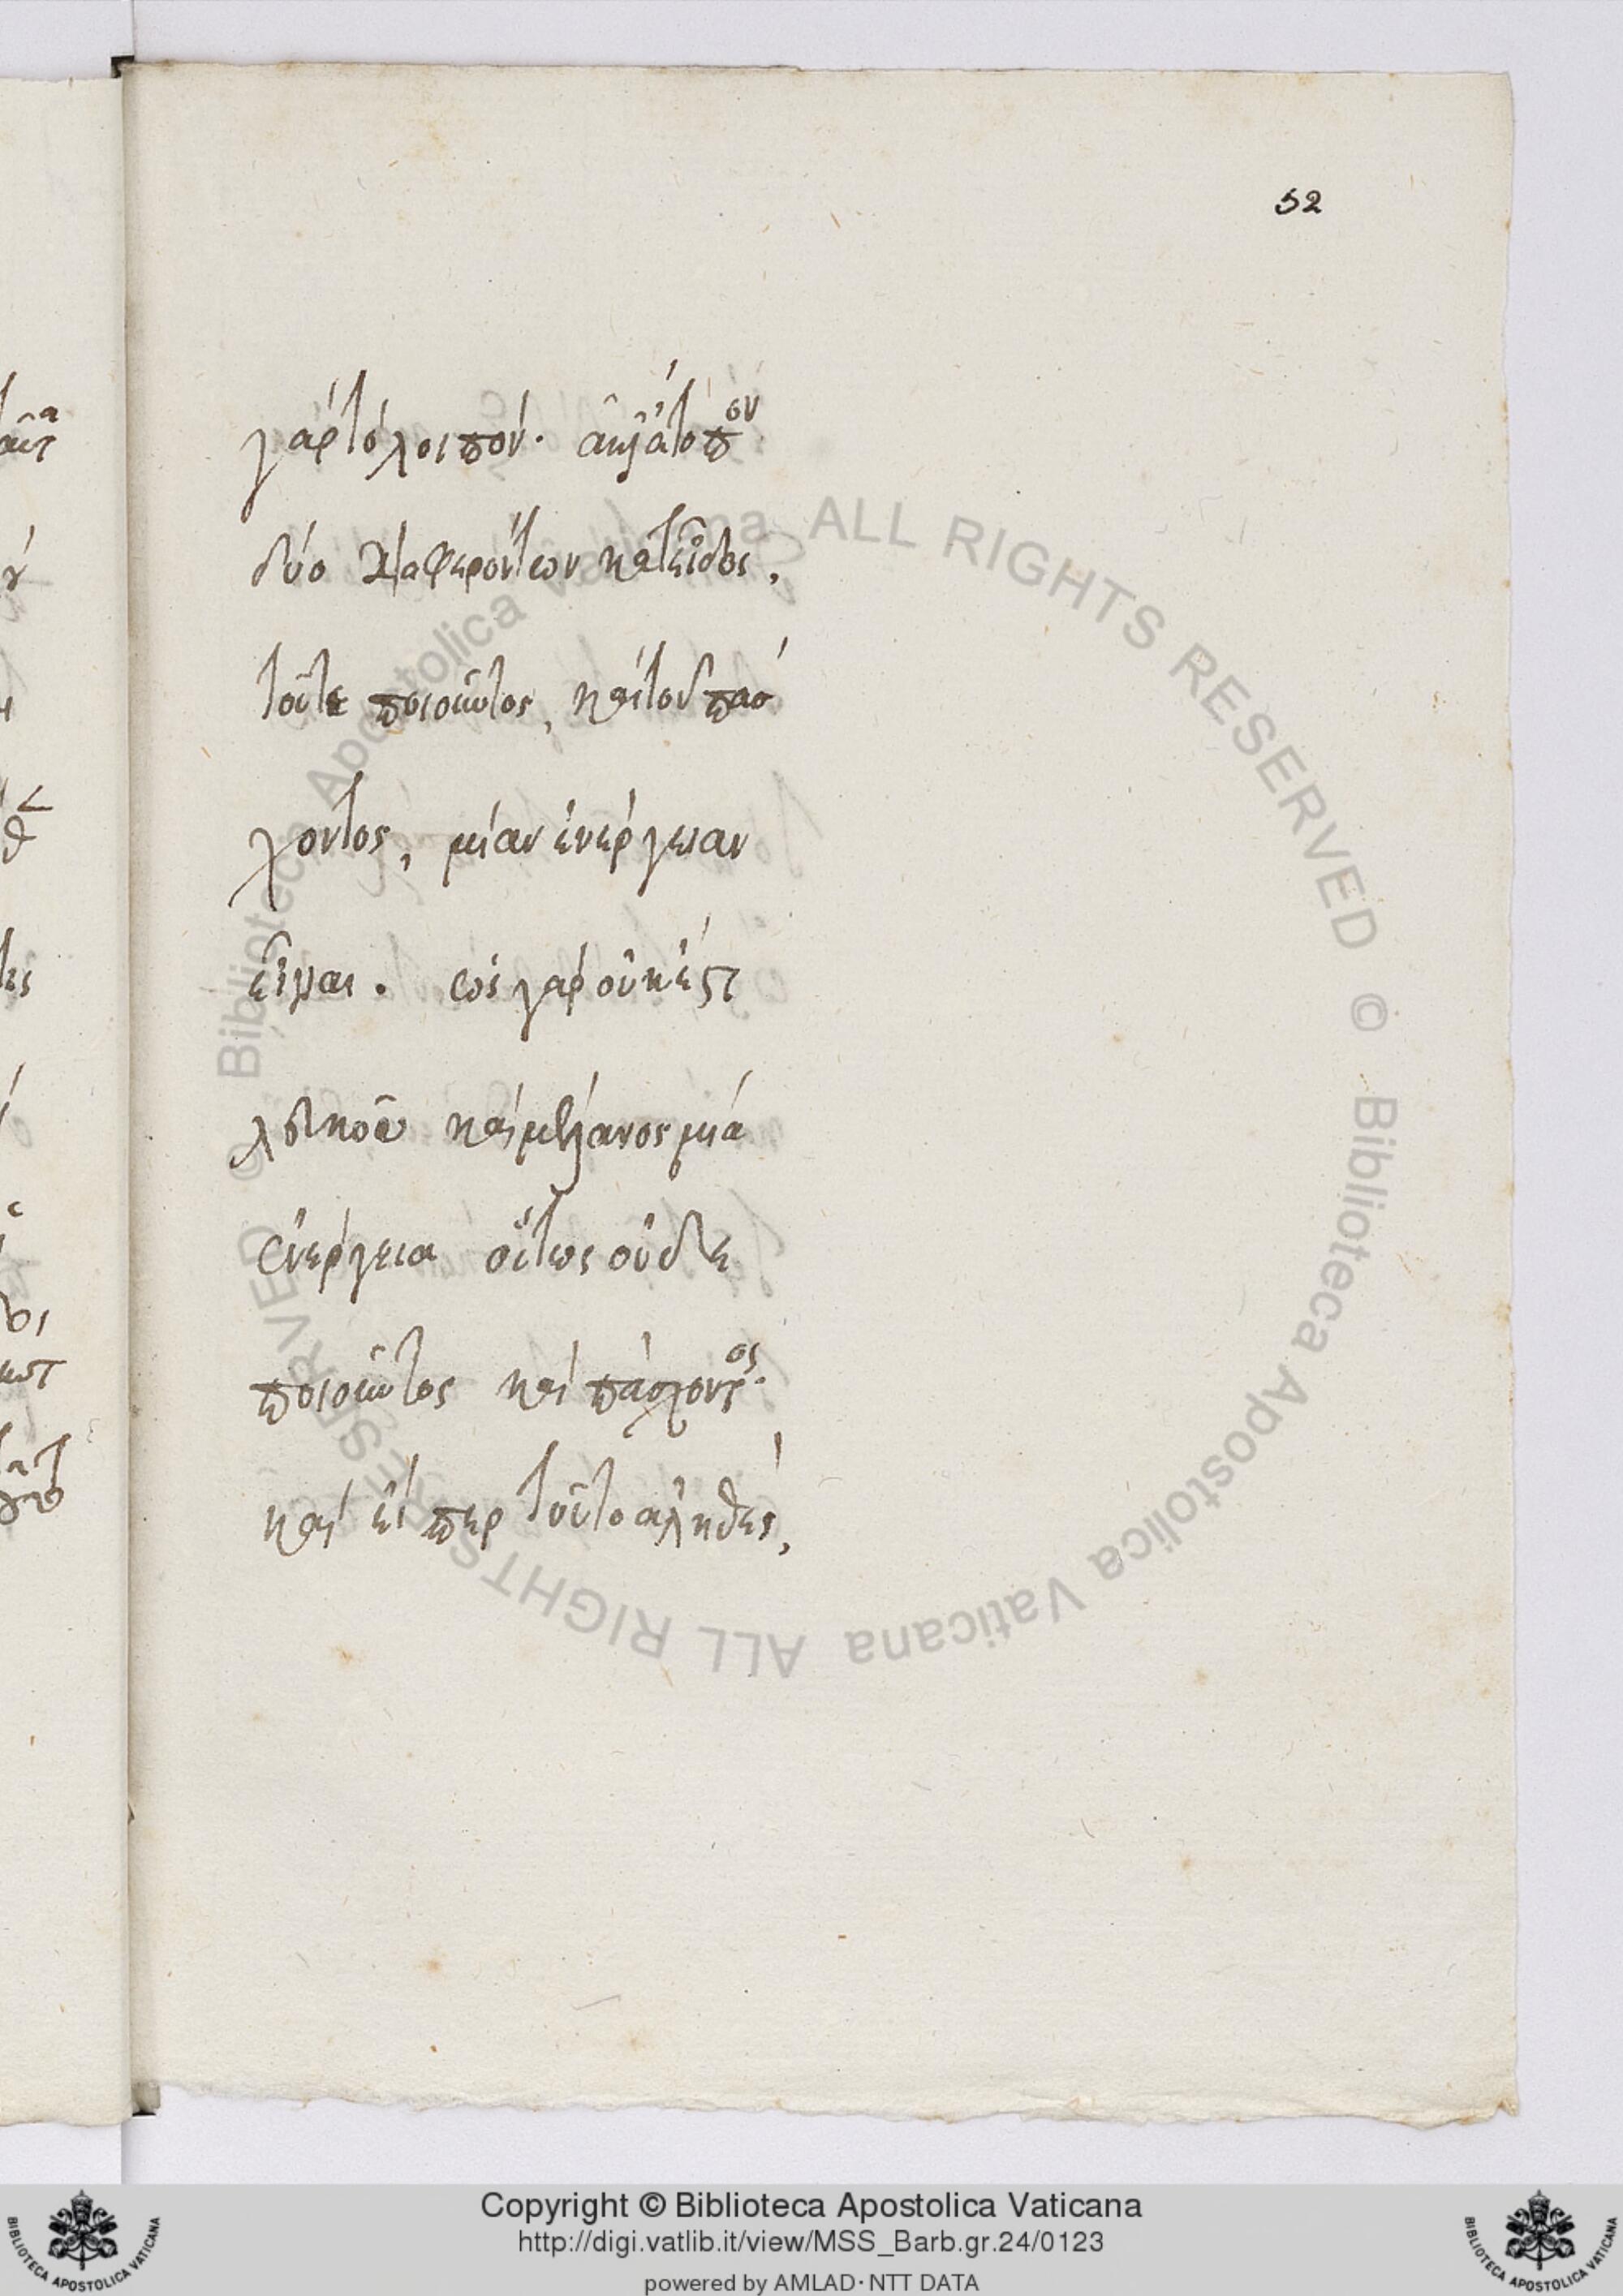 52
γὰρ τὸ λοιπόν. ἀλλ᾽ ἄτοπον
δύο διαφερόντων κατ᾽ εἶδος,
τοῦτε ποιοῦντος, καὶ τοῦ πάσ
χοντος, μίαν ἐνέργειαν
εἶναι. ὡς γὰρ οὐκ ἔστ
λευκοῦ καὶ μέλανος μία
ἐνέργεια οὕτως οὐδὲ
ποιοῦντος καὶ πάσχοντος.
καὶ εἴ περ τοῦτο ἀληθὲς,
© Biblioteca Apostolica Vaticana ALL RIGHTS RESERVED © Biblioteca Apostolica Vaticana ALL RIGHTS RESERVED
Copyright © Biblioteca Apostolica Vaticana
http://digi.vatlib.it/view/MSS_Barb.gr.24/0123
powered by AMLAD·NTT DATA
BIBLIOTECA APOSTOLICA VATICANA
BIBLIOTECA APOSTOLICA VATICANA